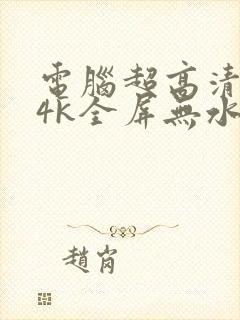 電腦超高清
4K全屏無水
趙肖